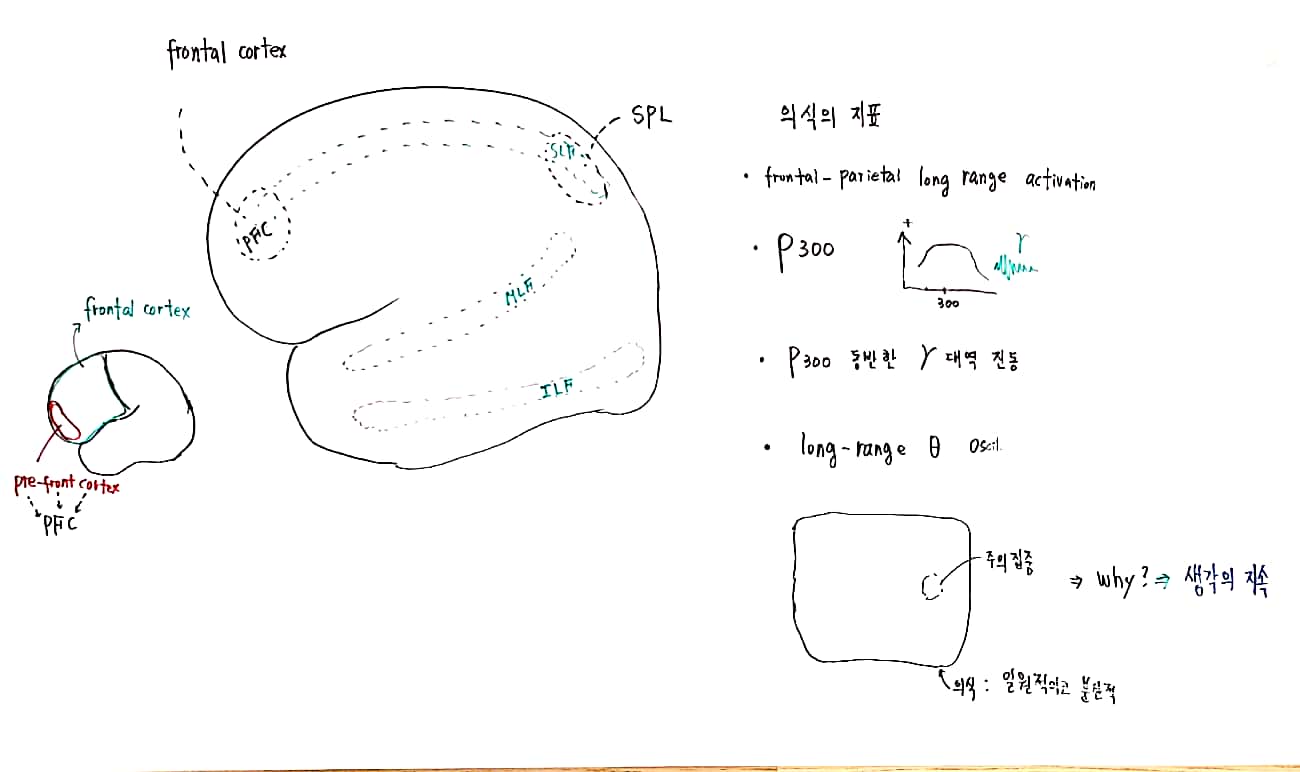 frontal cortex
SPL
SLF
PFC
MLF
ILF
frontal cortex
pre-front cortex
PFC
의식의 지표
• frontal-parietal long range activation
• P300
+
γ
300
• P300 동반한 γ 대역 진동
• long-range θ Oscil.
주의집중
⇒ why? ⇒ 생각의 지속
의식 : 일원적이고